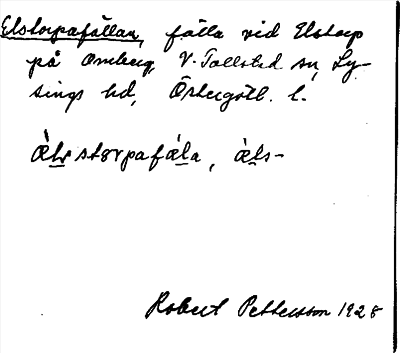 Elstorpafällan, fälla vid Elstorp
på Omberg, V. Tollstad sn, Ly-
sings hd, Östergötl. l.
æ̀lstorpafǽla, æ̀ls-
Robert Pettersson 1928